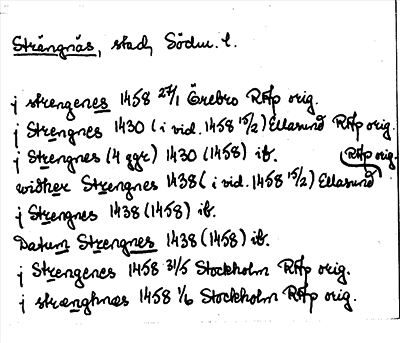 Strängnäs, stad, Södm. l.
j strengenes 1458 27/1 Örebro RAp orig.
j Strengnes 1430 (i vid. 1458 15/2) Ellasund RAp orig.
j Strengnes (4 ggr) 1430 (1458) ib. RAp orig.
widher Strengnes 1438 (i vid. 1458 15/2) Ellasund
j Strengnes 1438 (1458) ib.
Datum Strengnes 1438 (1458) ib.
j Strengenes 1458 31/5 Stockholm RAp orig.
j strænghnæs 1458 1/6 Stockholm RAp orig.